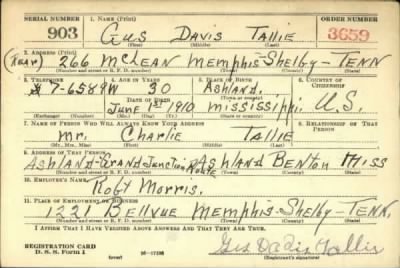 SERIAL NUMBER 1. NAME (Print) ORDER NUMBER
903 Gus Davis Tallie 3659
(First) (Middle) (Last)
2. ADDRESS (Print)
(Rear) 266 McLean Memphis-Shelby-TENN
(Number and street or R. F. D. number) (Town) (County) (State)
3. TELEPHONE 4. AGE IN YEARS 5. PLACE OF BIRTH 6. COUNTRY OF CITIZENSHIP
7-6589W 30 Ashland,
DATE OF BIRTH (Town or county)
June 1st 1910 Mississippi U.S.
(Exchange) (Number) (Mo.) (Day) (Yr.) (State or country)
7. NAME OF PERSON WHO WILL ALWAYS KNOW YOUR ADDRESS 8. RELATIONSHIP OF THAT PERSON
Mr. Charlie Tallie
(Mr., Mrs., Miss) (First) (Middle) (Last)
9. ADDRESS OF THAT PERSON
Ashland-Grand Junction Route Ashland Benton Miss
(Number and street or R. F. D. number) (Town) (County) (State)
10. EMPLOYER'S NAME
Robt Morris.
11. PLACE OF EMPLOYMENT OR BUSINESS
1221 Bellvue Memphis-Shelby-TENN.
(Number and street or R. F. D. number) (Town) (County) (State)
I AFFIRM THAT I HAVE VERIFIED ABOVE ANSWERS AND THAT THEY ARE TRUE.
REGISTRATION CARD
D. S. S. Form 1 Gus Davis Tallie
(Registrant's signature)